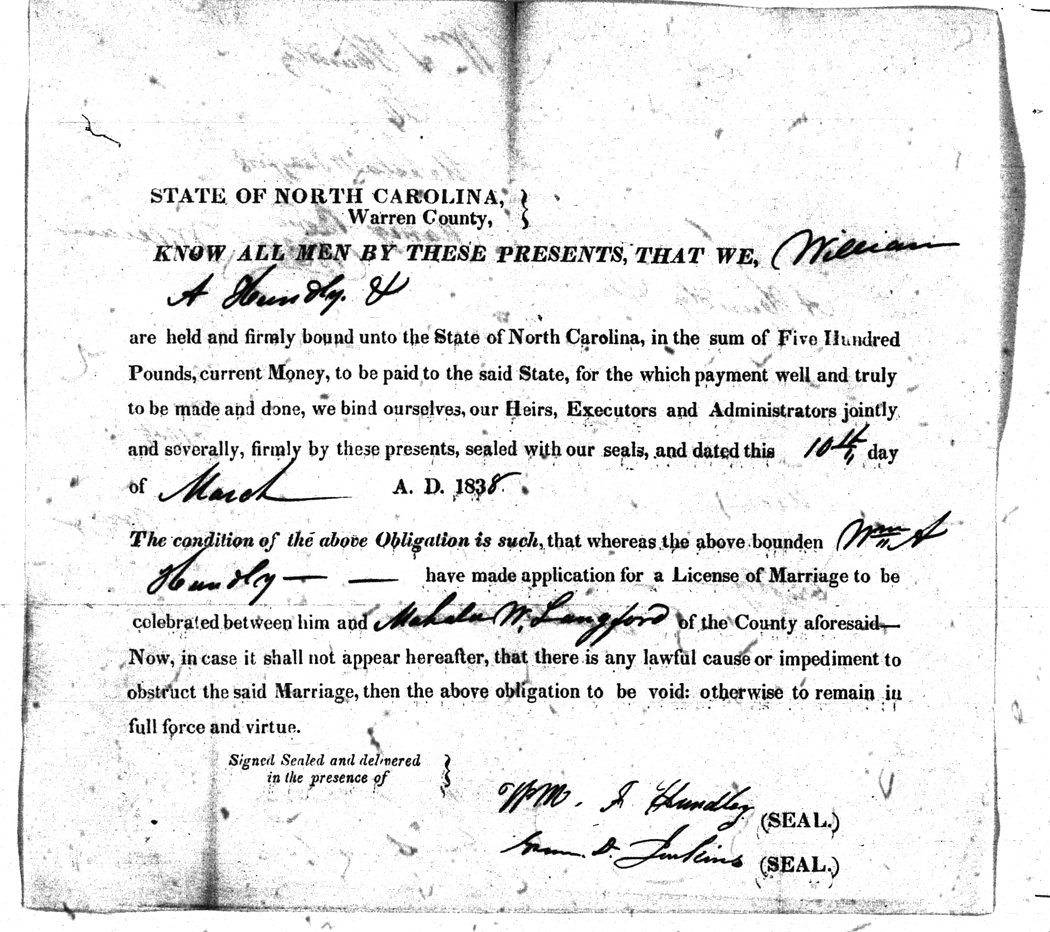 STATE OF NORTH CAROLINA,
Warren County,
KNOW ALL MEN BY THESE PRESENTS, THAT WE, William
A Hundly. &
are held and firmly bound unto the State of North Carolina, in the sum of Five Hundred
Pounds, current Money, to be paid to the said State, for the which payment well and truly
to be made and done, we bind ourselves, our Heirs, Executors and Administrators jointly
and severally, firmly by these presents, sealed with our seals, and dated this 10th day
of March A. D. 1838.
The condition of the above Obligation is such, that whereas the above bounden Wm A
Hundly — — have made application for a License of Marriage to be
celebrated between him and Mahala W. Langford of the County aforesaid—
Now, in case it shall not appear hereafter, that there is any lawful cause or impediment to
obstruct the said Marriage, then the above obligation to be void: otherwise to remain in
full force and virtue.
Signed Sealed and delivered
in the presence of
Wm. A Hundley (SEAL.)
D. Jenkins (SEAL.)